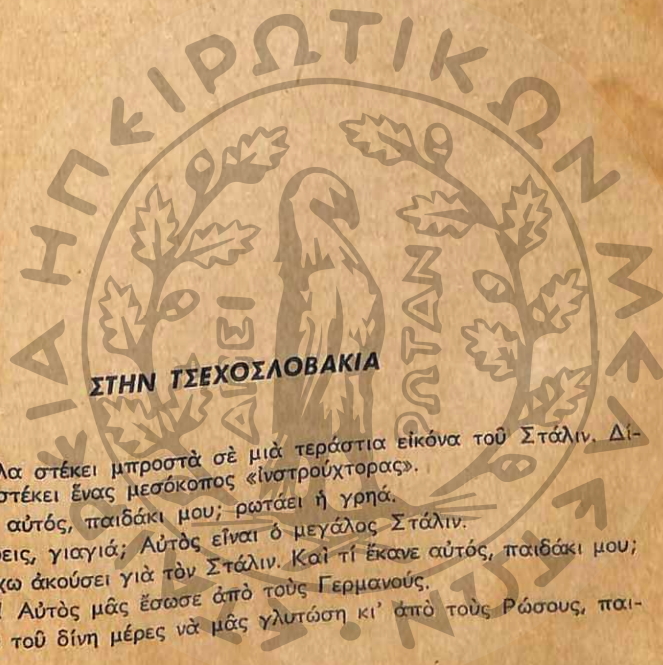 ΣΤΗΝ ΤΣΕΧΟΣΛΟΒΑΚΙΑ
λα στέκει μπροστὰ σὲ μιὰ τεράστια εἰκόνα τοῦ Στάλιν. Δί-
στέκει ἕνας μεσόκοπος «ἰνστρούχτορας».
αὐτός, παιδάκι μου; ρωτάει ἡ γρηά.
εις, γιαγιά; Αὐτὸς εἶναι ὁ μεγάλος Στάλιν.
χω ἀκούσει γιὰ τὸν Στάλιν. Καὶ τί ἔκανε αὐτός, παιδάκι μου;
! Αὐτὸς μᾶς ἔσωσε ἀπὸ τοὺς Γερμανούς.
τοῦ δίνη μέρες νὰ μᾶς γλυτώση κι' ἀπὸ τοὺς Ρώσους, παι-